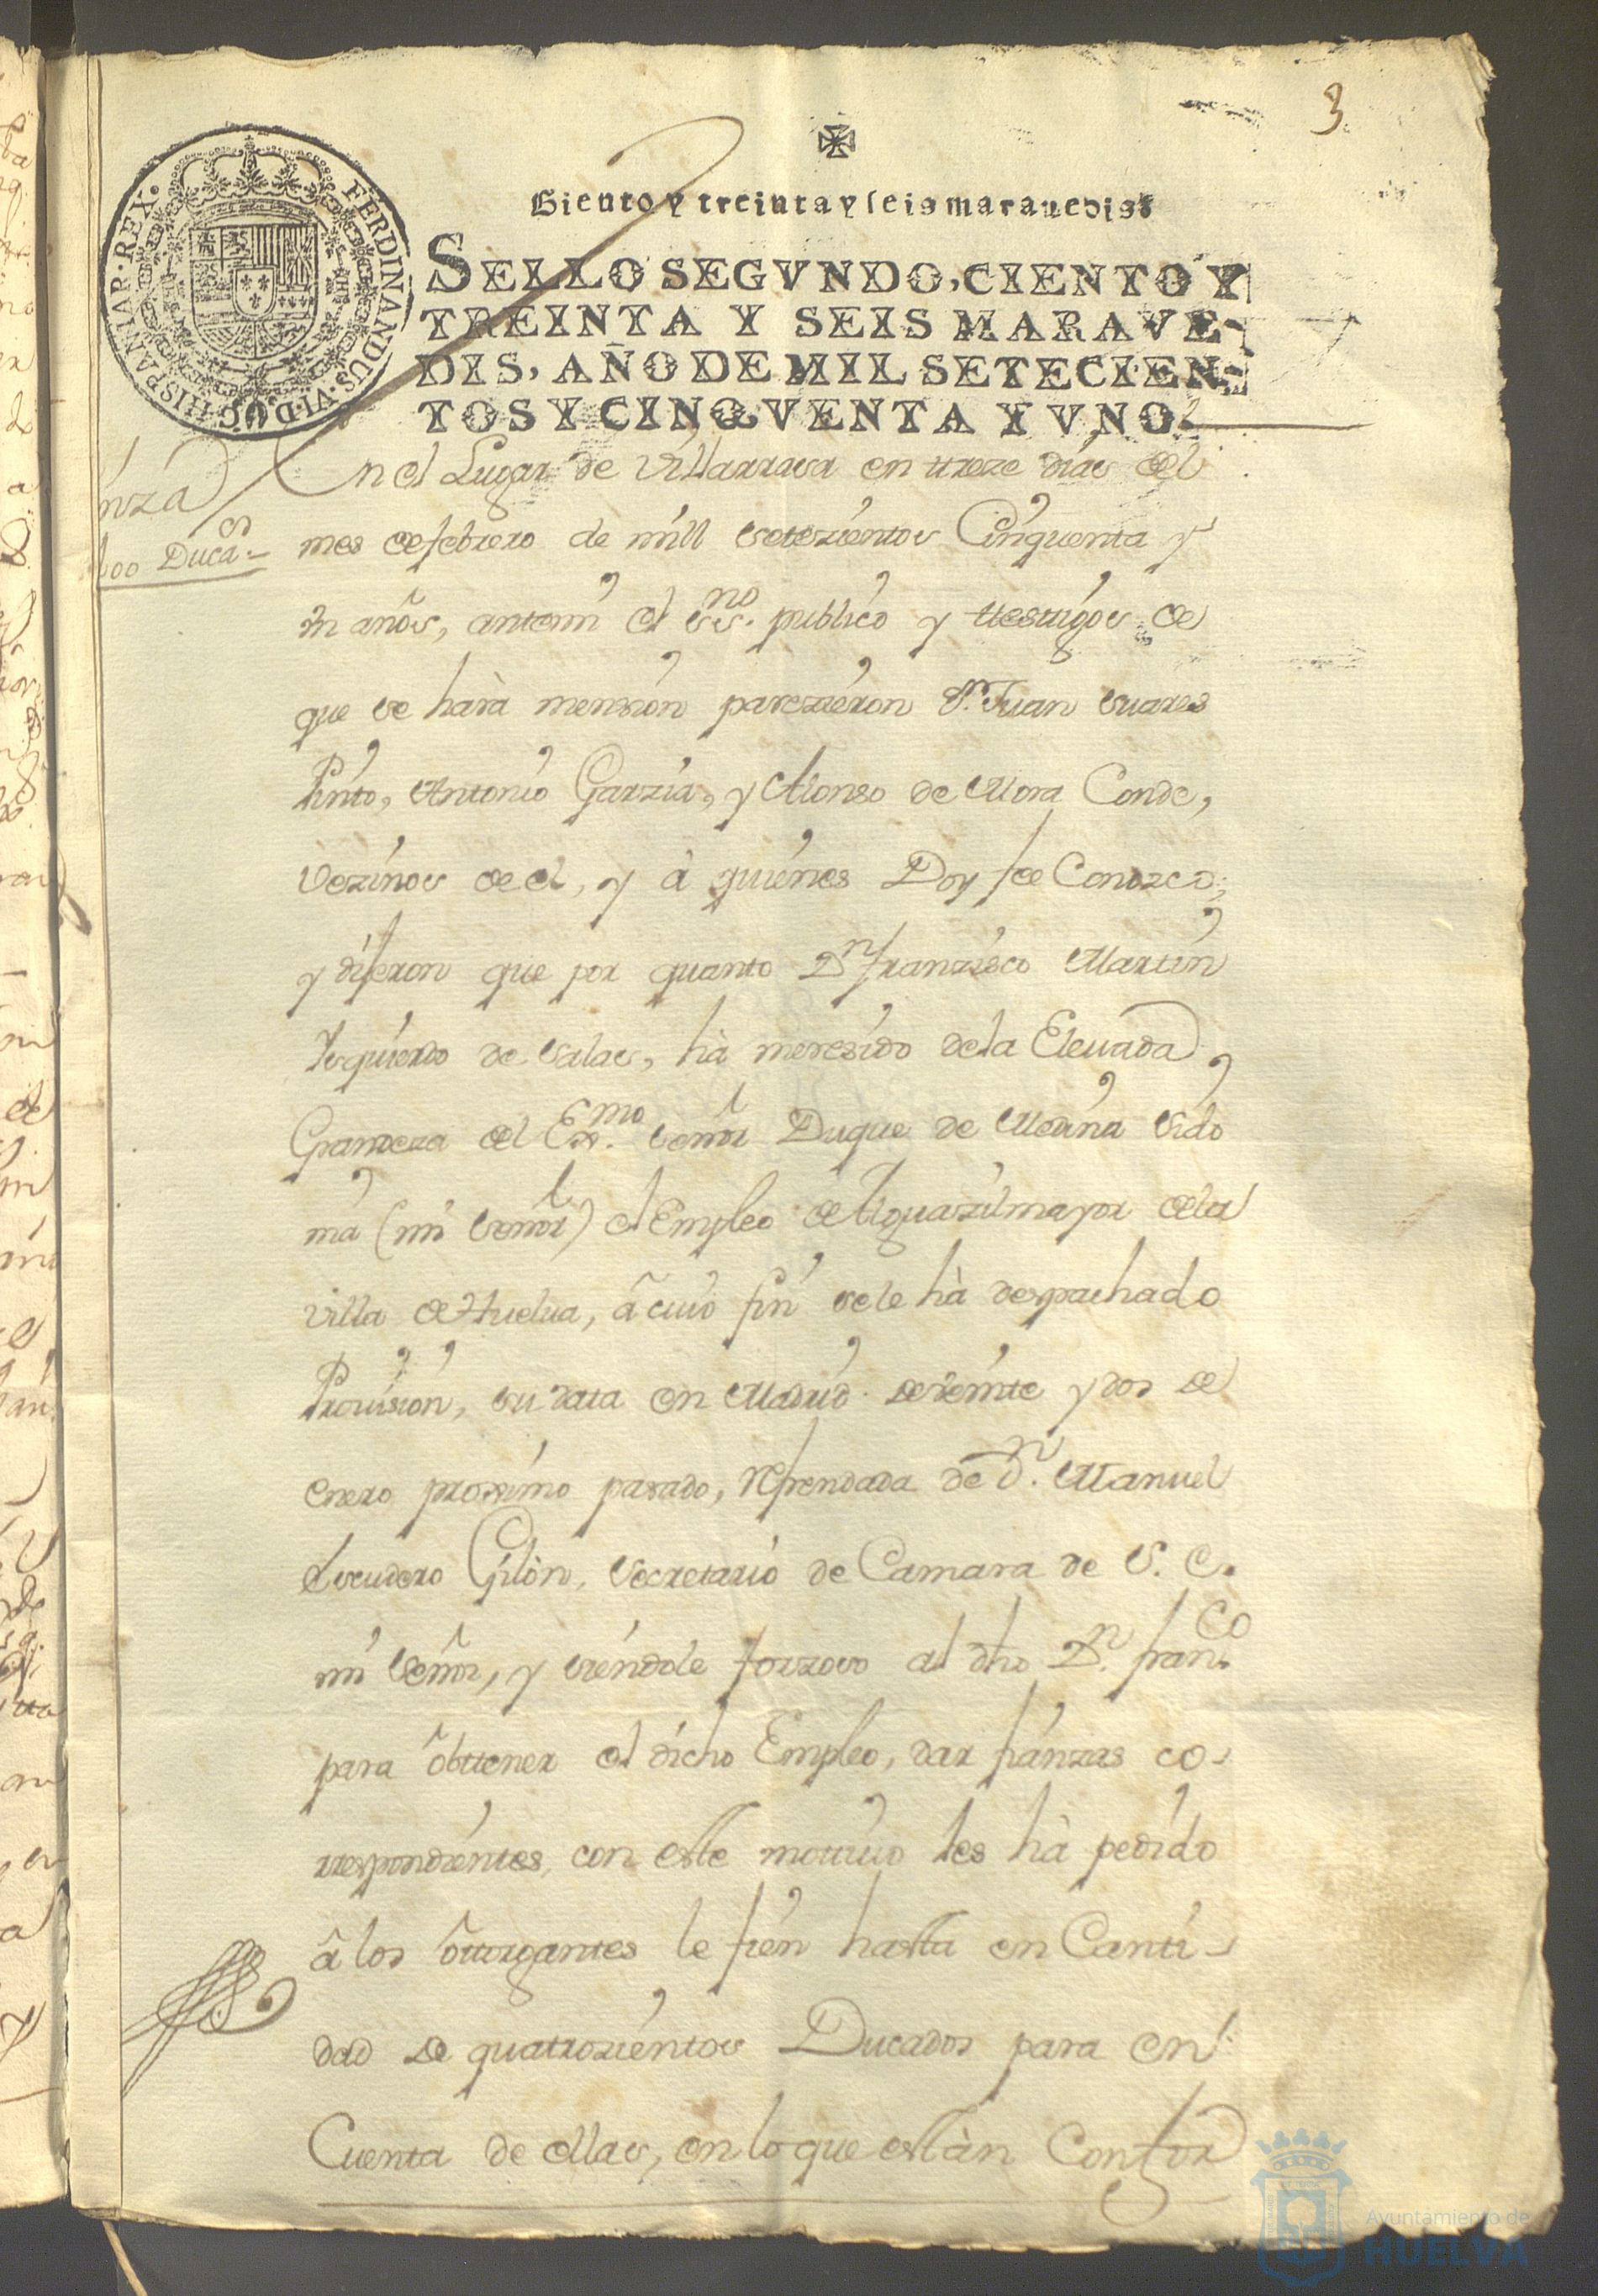 3
Ciento y treinta y seis marauedis
FERDINANDUS·VI·D·G·HISPANIAR·REX·
SELLO SEGVNDO, CIENTO Y
TREINTA Y SEIS MARAVE-
DIS, AÑO DE MIL SETECIEN-
TOS Y CINQVENTA Y VNO.
nza
400 Duca.os
En el Lugar de Villarrasa en treze dias del
mes de febrero de mill setezientos Cinquenta y
un años, antemi el ess.no publico y testigos de
que se harà mension parezieron Sr. Juan suares
Pinto, Antonio Garzia, y Alonso de Mora Conde,
vezinos de el, y à quienes Doy fee Conozco;
y dijeron que por quanto Dn. franzisco Martin
Isquierdo de salas, hà meresido de la Eleuada
Grandeza del Ex.mo señor Duque de Medina Sido
nia (mi señor) el Empleo de Alguazil mayor de la
villa de Huelua, â cuio fin se le hà despachado
Prouision, su data en Madrid de veinte y dos de
enero proximo pasado, refrendada de Dn. Manuel
Escudero Gilòn, Secretario de Camara de S. E.
mi señor, y siendole forzoso al dho Dn. fran.co
para obttener el dicho Empleo, dar fianzas co-
rrespondientes, con este mottiuo les hà pedido
â los ôttorgantes le fien hastta en Canti-
dad de quatrozientos Ducados para en
Cuenta de ellas, en lo que estàn Confor
Ayuntamiento de
HUELVA